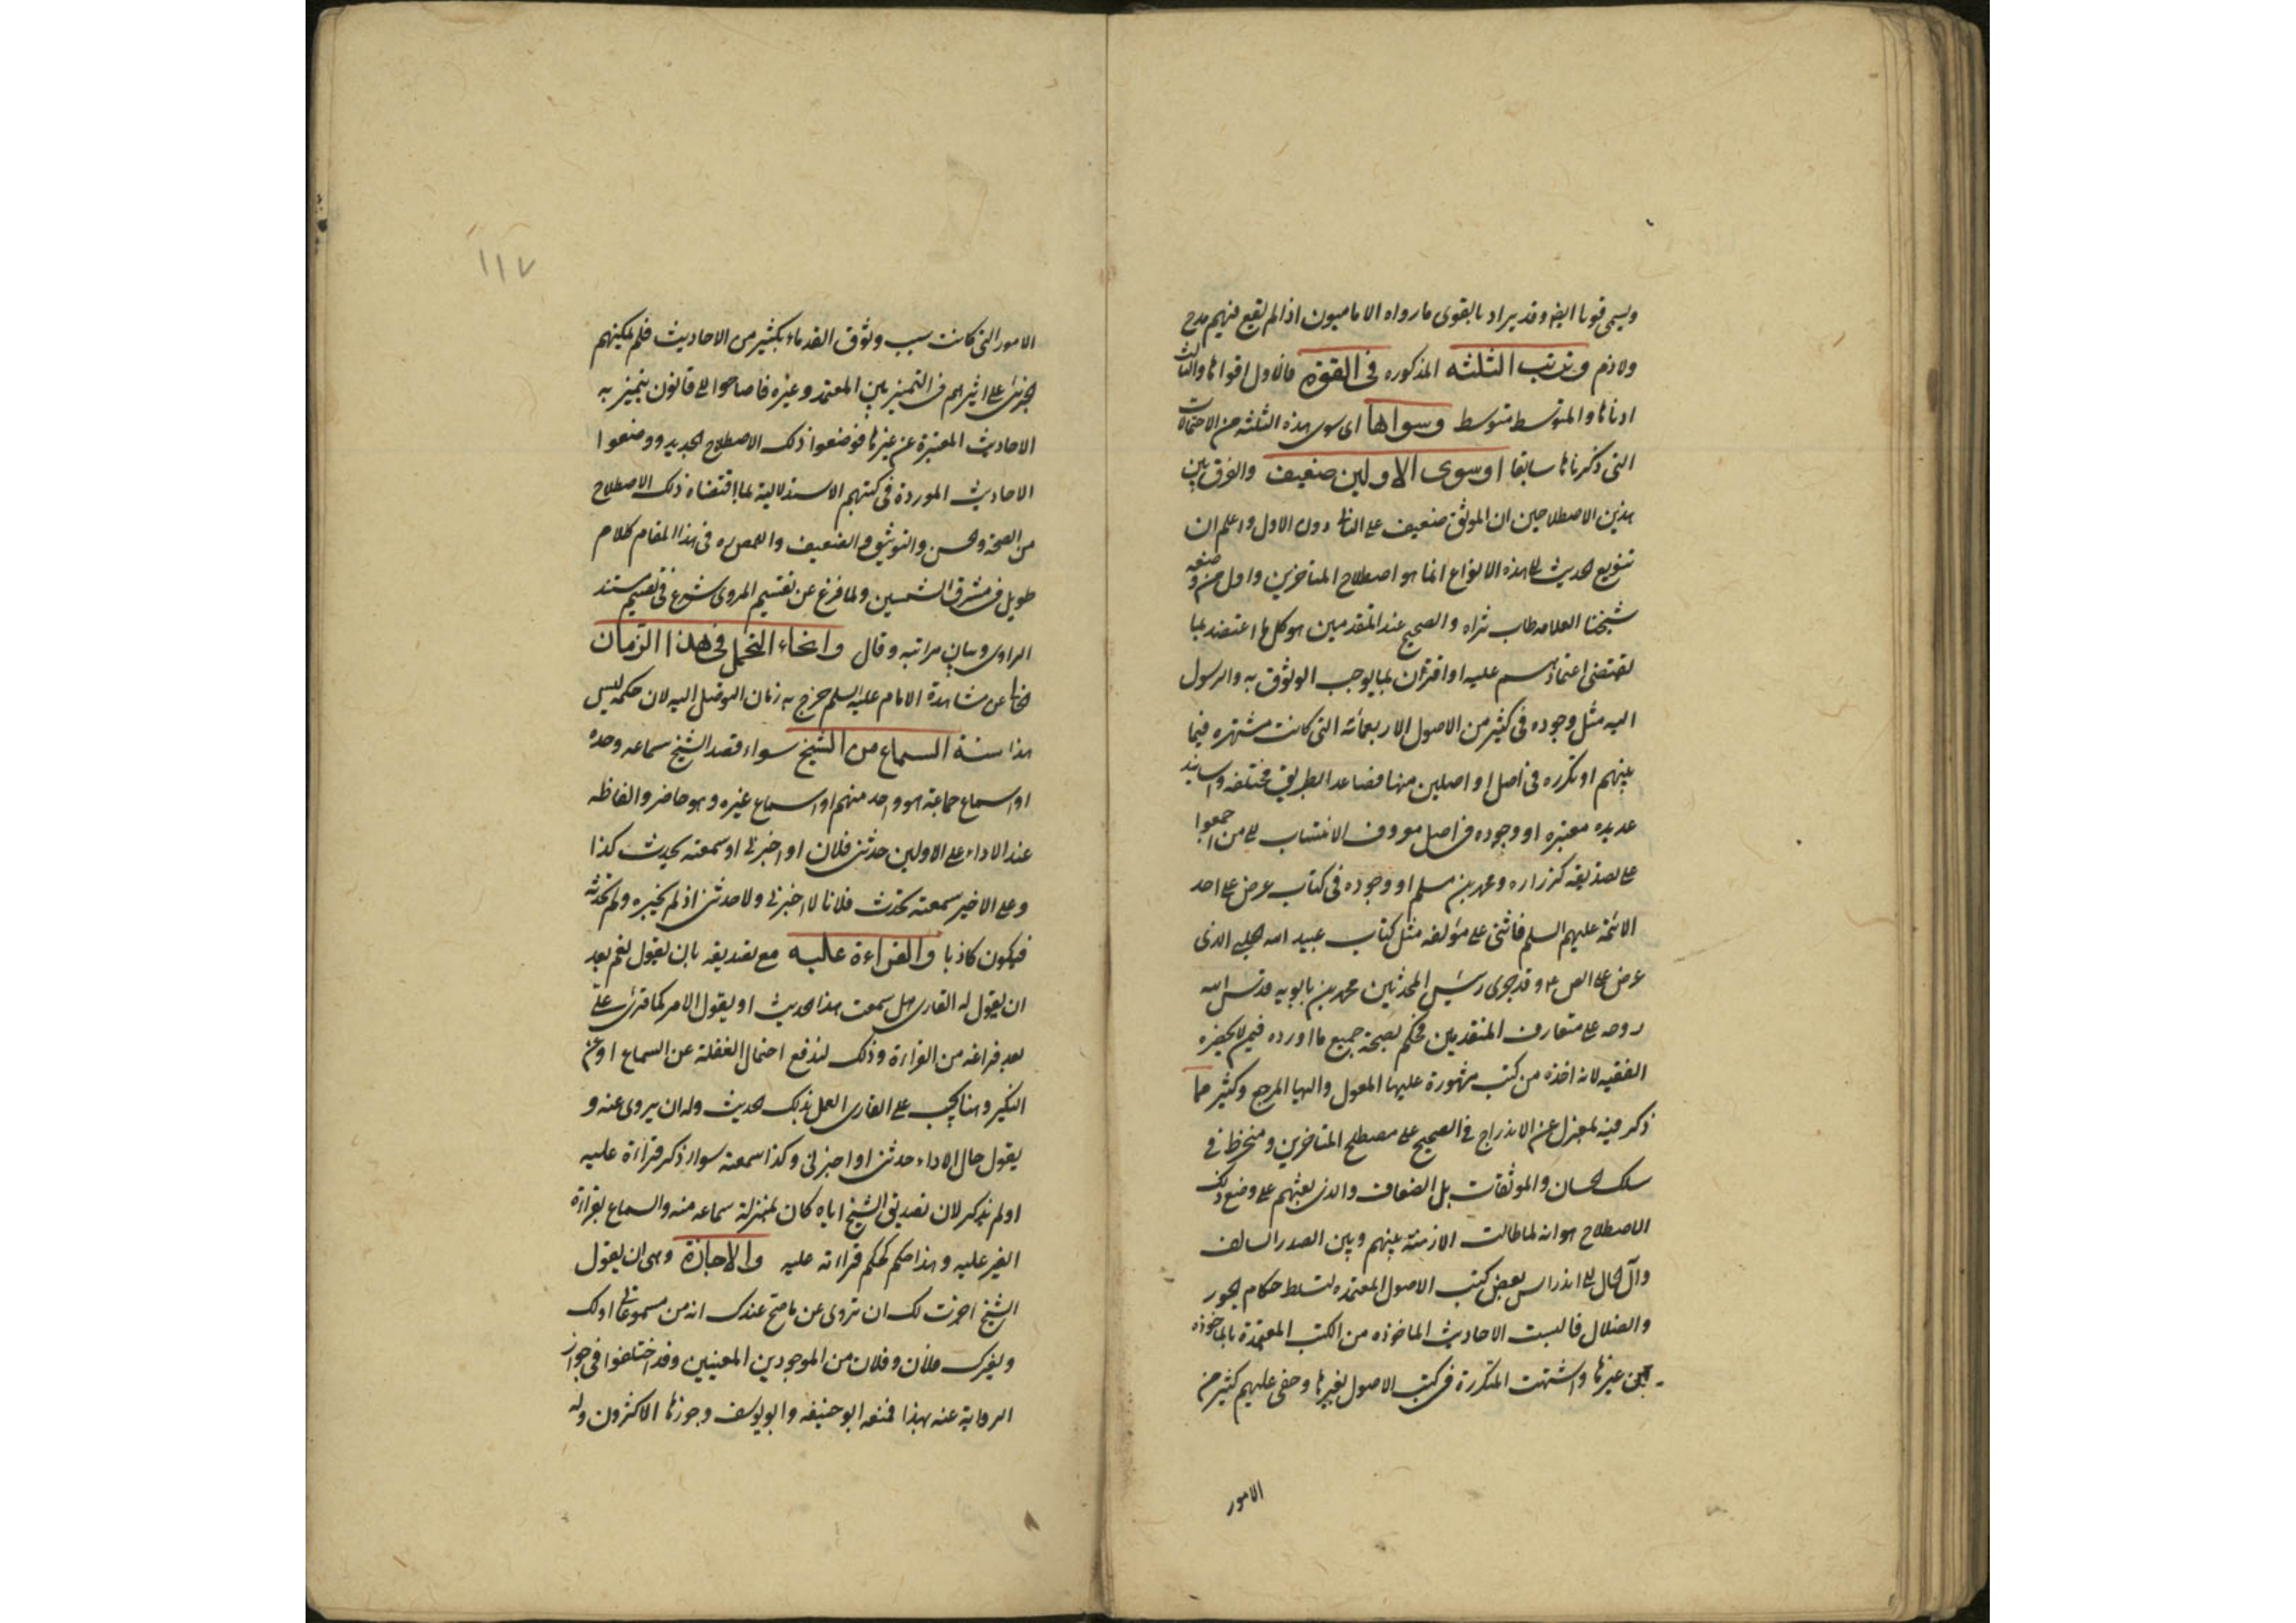 ويسمى قويا ايضا وقد يراد بالقوى ما رواه الاماميون اذا لم يقع فيهم مدح
ولا ذم وترتب الثلثه المذكوره فى القوة فالاول اقواها والثالث
ادناها والمتوسط متوسط وسواها اى سوى هذه الثلثه من الاحتمالات
التى ذكرناها سابقا او سوى الاولين ضعيف والفرق بين
هذين الاصطلاحين ان الموثق ضعيف على الثانى دون الاول واعلم ان
تنويع الحديث الى هذه الانواع انما هو اصطلاح المتاخرين واول من وضعه
شيخنا العلامه طاب ثراه والصحيح عند المتقدمين هو كل ما اعتضد بما
يقتضى اعتمادهم عليه او اقترن بما يوجب الوثوق به والركون
اليه مثل وجوده فى كثير من الاصول الاربعمائه التى كانت مشتهره فيما
بينهم او تكرره فى اصل او اصلين منها فصاعدا بطريق مختلفه واسانيد
عديده معتبره او وجوده فى اصل معروف الانتساب الى من اجمعوا
على تصديقه كزراره ومحمد بن مسلم او وجوده فى كتاب عرض على احد
الائمة عليهم السلم فاثنى على مؤلفه مثل كتاب عبيد الله الحلبى الذى
عرض على الص ع وقد جرى رئيس المحدثين محمد بن بابويه قدس الله
روحه على متعارف المتقدمين فحكم بصحة جميع ما اورده فيمن لا يحضره
الفقيه لانه اخذه من كتب مشهورة عليها المعول واليها المرجع وكثير مما
ذكر فيه بمعزل عن الاندراج فى الصحيح على مصطلح المتاخرين ومنخرط فى
سلك الحسان والموثقات بل الضعاف والذى بعثهم على وضع ذلك
الاصطلاح هو انه لما طالت الازمنة بينهم وبين الصدر السالف
وآل الحال الى اندراس بعض كتب الاصول المعتمده لتسلط حكام الجور
والضلال فالبست الاحاديث الماخوذه من الكتب المعتمدة بالماخوذه
من غيرها واشتبهت المتكررة فى كتب الاصول بغيرها وخفى عليهم كثير من
الامور
١١٧
الامور التى كانت سبب وثوق القدماء بكثير من الاحاديث فلم يمكنهم
الجرى على اثرهم فى التمييز بين المعتمد وغيره فاحتاجوا الى قانون يتميز به
الاحاديث المعتبرة عن غيرها فوضعوا ذلك الاصطلاح الجديد ووصفوا
الاحاديث الموردة فى كتبهم الاستدلالية بما اقتضاه ذلك الاصطلاح
من الصحة والحسن والتوثيق والضعيف وللمص ره فى هذا المقام كلام
طويل فى مشرق الشمسين ولما فرغ عن تقسيم المروى شرع فى تقسيم مستند
الراوى وبيان مراتبه وقال وانحاء التحمل فى هذا الزمان
الخالى عن مشاهدة الامام عليه السلم خرج به زمان التوصل اليه لان حكمه ليس
هذا ستة السماع من الشيخ سواء قصد الشيخ سماعه وحده
او اسماع جماعة هو واحد منهم او اسماع غيره وهو حاضر والفاظه
عند الاداء على الاولين حدثنى فلان او اخبرنى او سمعته يحدث كذا
وعلى الاخير سمعته يحدث فلانا لا اخبرنى ولا حدثنى اذ لم يخبره ولم يحدثه
فيكون كاذبا والقراءة عليه مع تصديقه بان يقول نعم بعد
ان يقول له القارى هل سمعت هذا الحديث او يقول الامر كما قرئ علىّ
بعد فراغه من القراءة وذلك لندفع احتمال الغفلة عن السماع او عن
النكير وهنا يجب على القارى العمل بذلك الحديث وله ان يروى عنه و
يقول حال الاداء حدثنى او اخبرنى وكذا سمعته سواء ذكر قراءة عليه
او لم يذكر لان تصديق الشيخ اياه كان بمنزلة سماعه منه والسماع بقراءة
الغير عليه وهذا حكم كحكم قراءته عليه والاجازة وهى ان يقول
الشيخ اجزت لك ان تروى عنى ما صح عندك انه من مسموعاتى او لك
ولغيرك فلان وفلان من الموجودين المعينين وقد اختلفوا فى جواز
الرواية عنه بهذا فمنعه ابو حنيفه وابو يوسف وجوزها الاكثرون وله